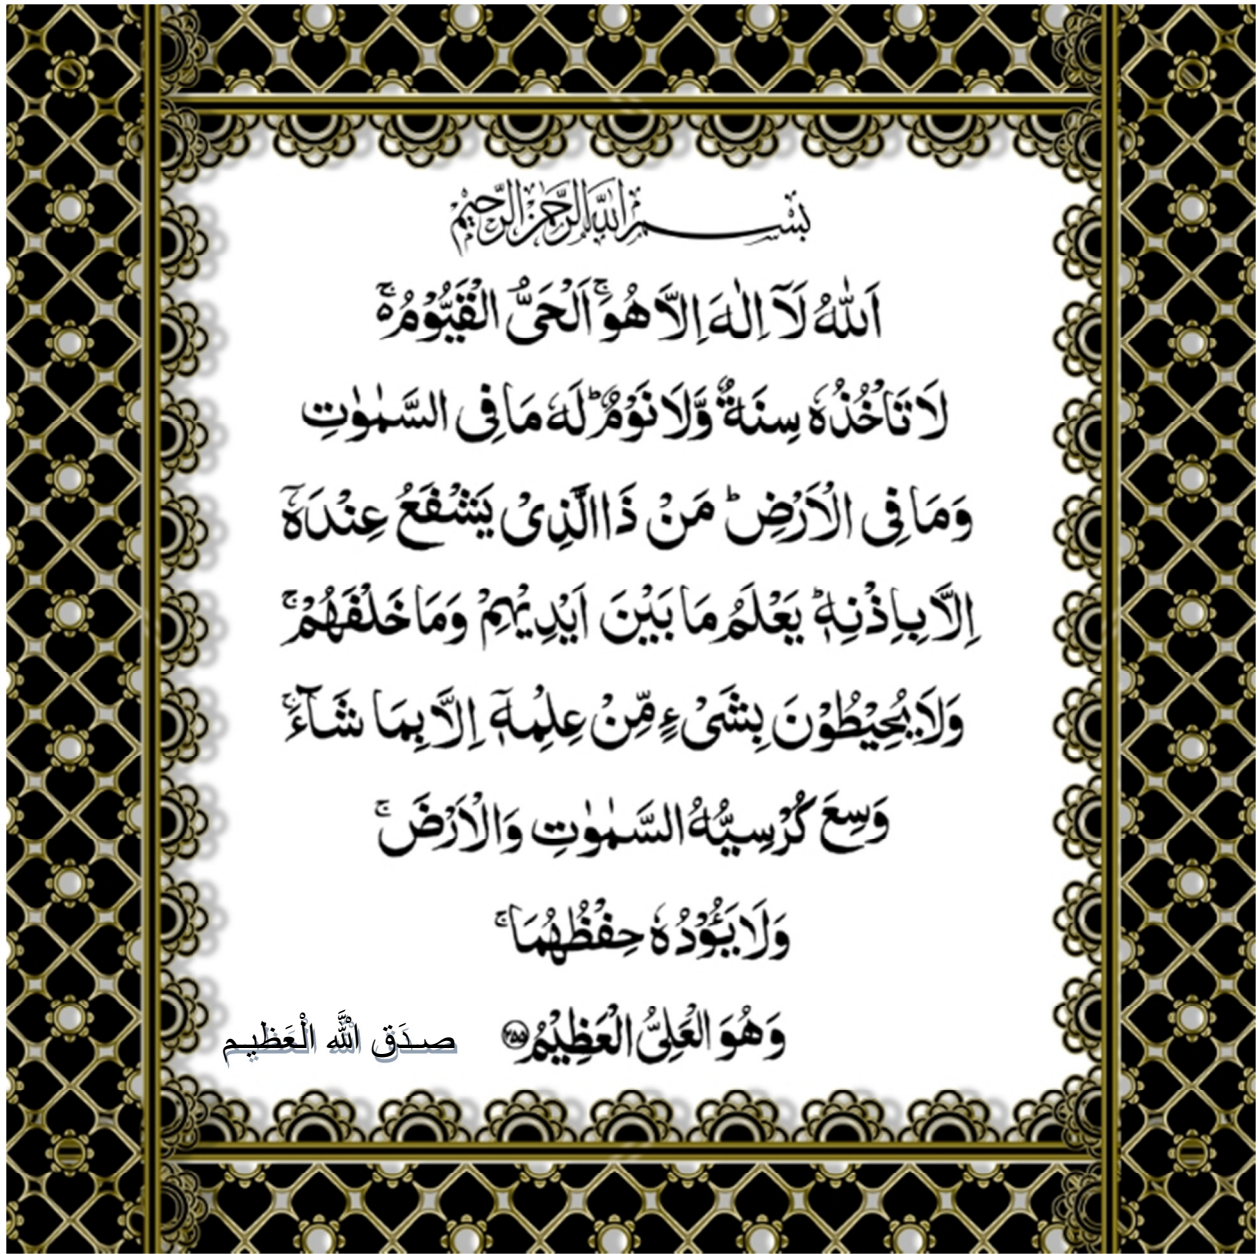 بِسْمِ اللهِ الرَّحْمٰنِ الرَّحِيْمِ
اَللّٰهُ لَآ اِلٰهَ اِلَّا هُوَۚ اَلْحَىُّ الْقَيُّوْمُ ۚ
لَا تَاْخُذُهٗ سِنَةٌ وَّلَا نَوْمٌ ؕ لَهٗ مَا فِى السَّمٰوٰتِ
وَمَا فِى الْاَرْضِ ؕ مَنْ ذَا الَّذِىْ يَشْفَعُ عِنْدَهٗۤ
اِلَّا بِاِذْنِهٖ ؕ يَعْلَمُ مَا بَيْنَ اَيْدِيْهِمْ وَمَا خَلْفَهُمْ ۚ
وَلَا يُحِيْطُوْنَ بِشَىْءٍ مِّنْ عِلْمِهٖۤ اِلَّا بِمَا شَآءَ ۚ
وَسِعَ كُرْسِيُّهُ السَّمٰوٰتِ وَالْاَرْضَ ۚ
وَلَا يَـُٔوْدُهٗ حِفْظُهُمَا ۚ
وَهُوَ الْعَلِىُّ الْعَظِيْمُ ﴿۲۵۵﴾ صدَق اللَّه الْعَظيم